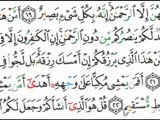 إِلَّا ٱلرَّحْمَٰنُ إِنَّهُۥ بِكُلِّ شَىْءٍۭ بَصِيرٌ ١٩ أَمَّنْ
لَّكُمْ يَنصُرُكُم مِّن دُونِ ٱلرَّحْمَٰنِ إِنِ ٱلْكَٰفِرُونَ
هَٰذَا ٱلَّذِى يَرْزُقُكُمْ إِنْ أَمْسَكَ رِزْقَهُۥ بَل لَّجُّوا۟
أَفَمَن يَمْشِى مُكِبًّا عَلَىٰ وَجْهِهِۦٓ أَهْدَىٰٓ أَمَّن
مُّسْتَقِيمٍ ٢٢ قُلْ هُوَ ٱلَّذِىٓ أَنشَأَكُمْ وَجَعَلَ لَكُمُ